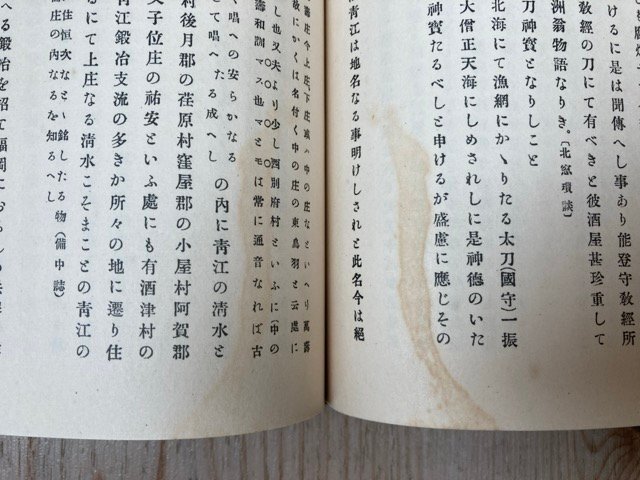 けるには聞傳へし事あり能登守教經所
教經の刀にて有べきと彼酒屋甚珍重して
洲翁物語なりき。〔北窓瑣談〕
刀神寶となりしこと
北海にて漁網にかゝりたる太刀(國守)一振
大僧正天海にしめされしに是神德のいた
神寶たるべしと申けるが盛慮に應じその
青江は地名なる事明けしされと此名今は絕
壽庄今上庄、下庄或ハ中の庄なといへり萬壽
故にかくは名付く中の庄の東鳥羽と云處に
し也又夫より少し西別府村といふに(中の
壽和訓マス也マとモは常に通音なれば古
く唱への安らかなる
して唱へたる成へし
の內に青江の清水と
村後月郡の荏原村窪屋郡の小屋村阿賀郡
父子位庄の祐安といふ處にも有酒津村の
るにて上庄なる清水こそまことの青江の
青江鍛冶支流の多きか所々の地に遷り住
住恒次なとゝ銘したる物
庄の內なるを知るへし
(備中誌)